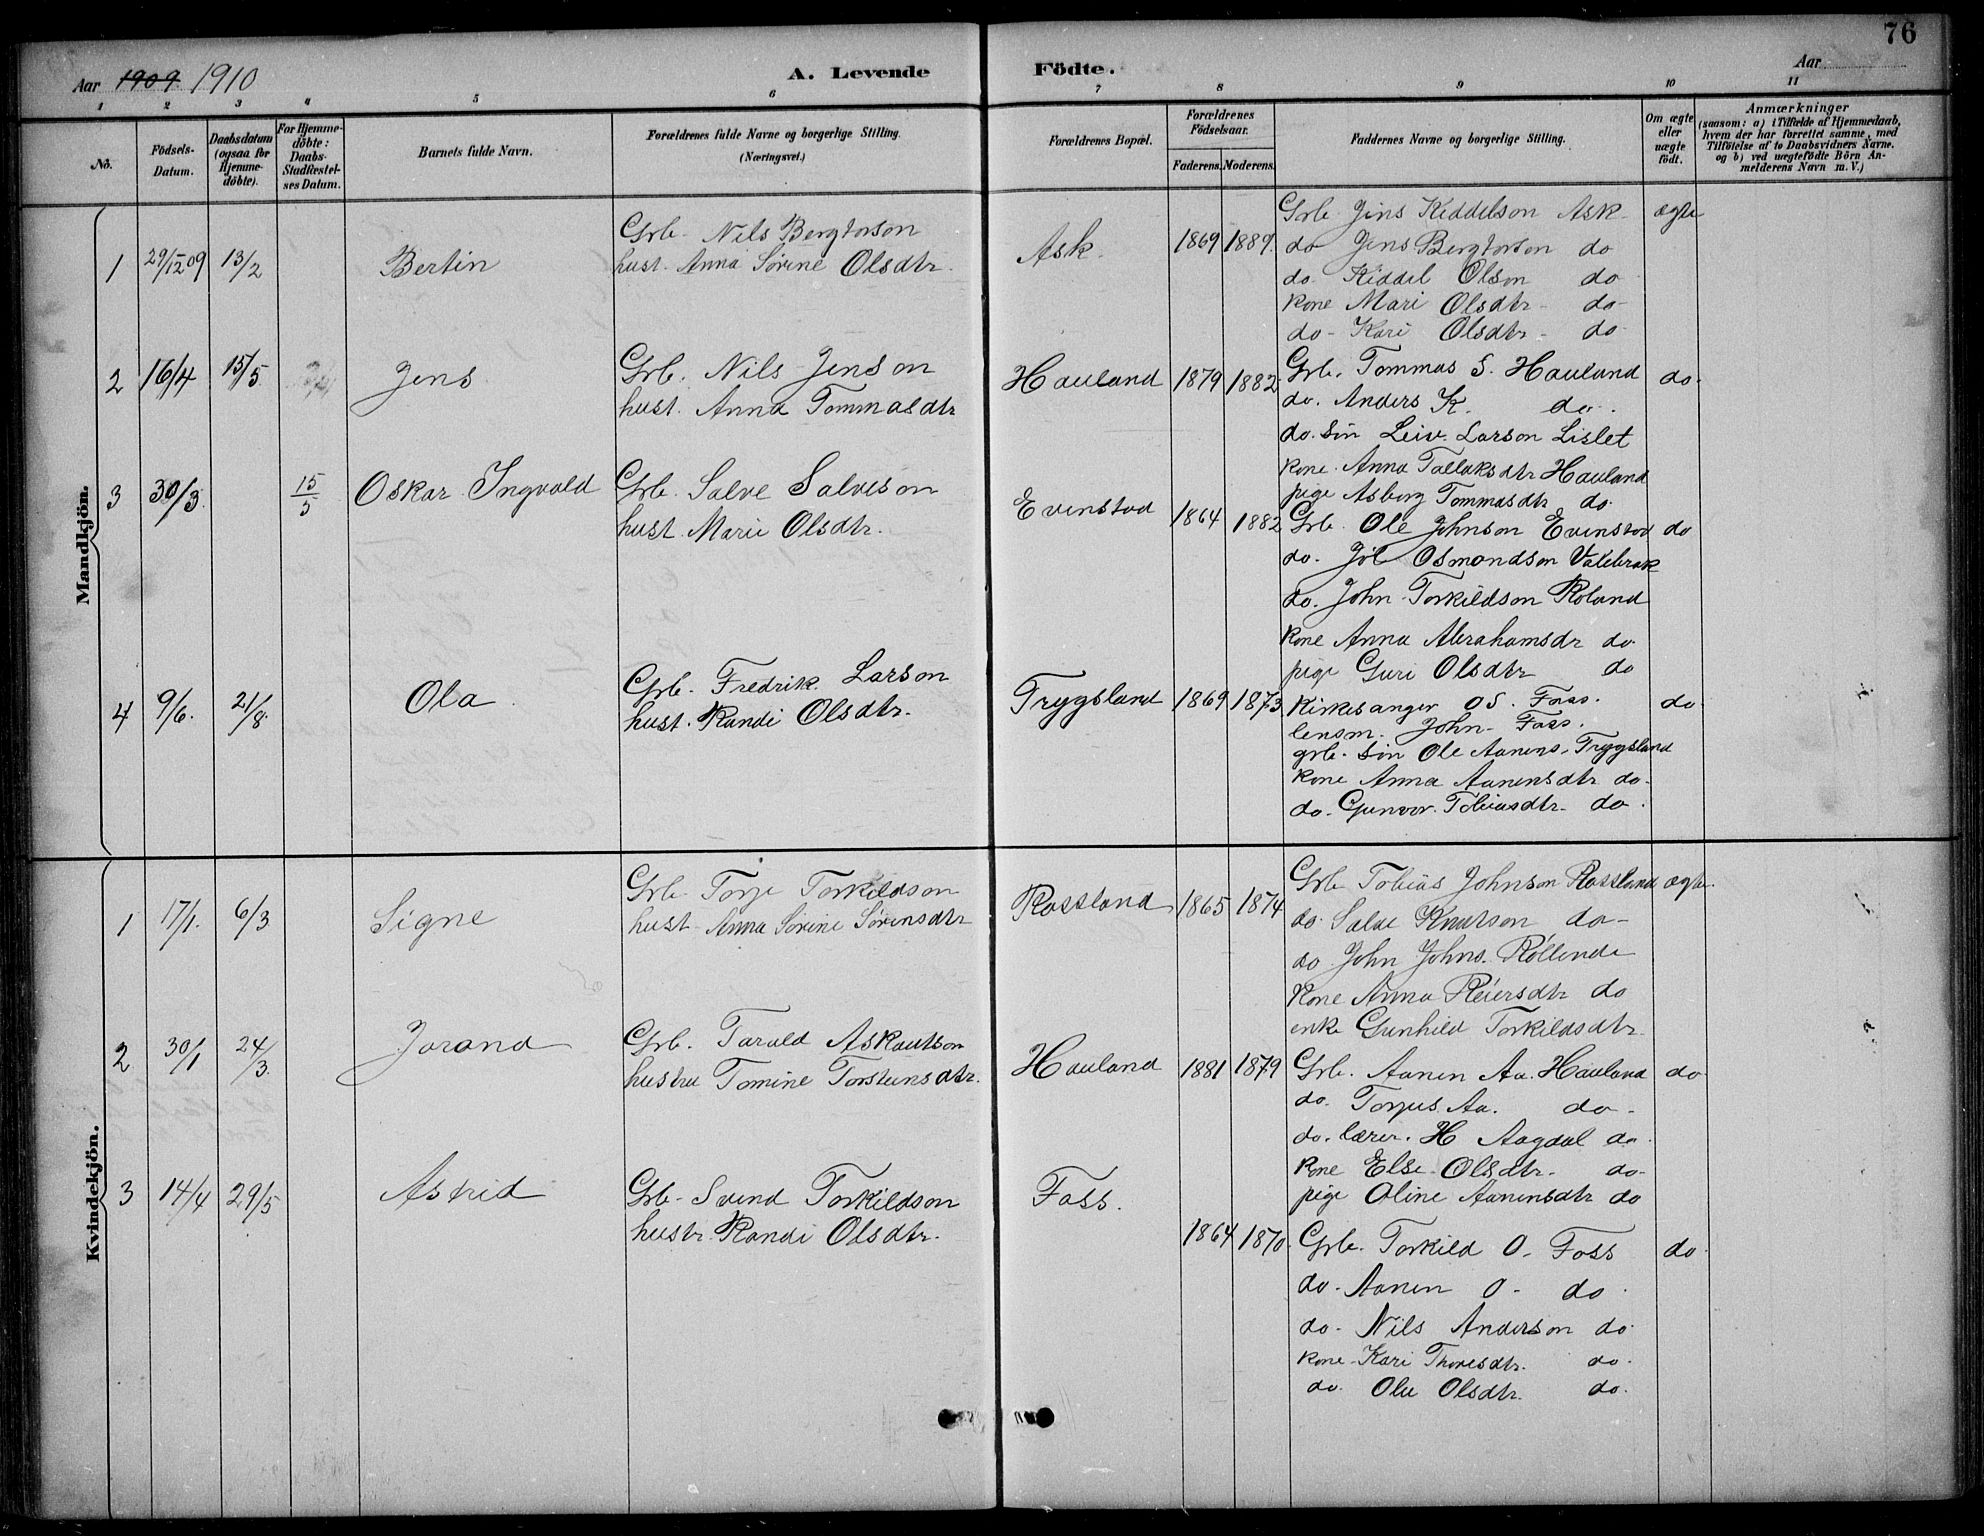 76
Aar 1909. 1910 A. Levende Födte. Aar
1 2 3 4 5 6 7 8 9 10 11
No.
Födsels-Datum.
Daabsdatum (ogsaa for Hjemme-döbte).
For Hjemme-döbte: Daabs-Stadfæstel-ses Datum.
Barnets fulde Navn.
Forældrenes fulde Navne og borgerlige Stilling. (Næringsvei.)
Forældrenes Bopæl.
Forældrenes Födselsaar.
Faderens. Moderens.
Faddernes Navne og borgerlige Stilling.
Om ægte eller uægte født.
Anmærkninger
(saasom: a) i Tilfælde af Hjemmedaab,
hvem der har forrettet samme, med
Tilföielse af to Daabsvidners Navne.
og b) ved uægtefödte Börn An-
melderens Navn m. V.)
Mandkjön.
1 29/12 09 13/2 Bertin
Grb. Nils Bergtorson
hust. Anna Sørine Olsdtr.
Ask. 1869 1889.
Grb. Jens Kiddelson Ask. ægte
do Jens Bergtorson do
do. Kiddel Olson do
kone Mari Olsdtr. do
do. Kari Olsdtr. do
2 16/4 15/5 Jens
Grb. Nils Jenson
hust. Anna Tommasdtr
Hauland 1879 1882
Grb. Tommas S. Hauland do.
do. Anders K. do.
do. søn Leiv. Larson Lislet
kone. Anna Tallaksdtr Hauland
pige Asborg Tommasdtr do.
3 30/3 15/5 Oskar Ingvald
Grb. Salve Salveson
hust. Marie Olsdtr.
Evenstad 1864 1882
Grb. Ole Johnson Evenstad do
do. Osmondson
do. John Torkildson Roland
kone Anna Abrahamsdr do.
pige Guri Olsdtr do
4 9/6. 21/8. Ola
Grb. Fredrik. Larson
hust. Randi Olsdtr.
Trygsland 1869 1873
Kirkesanger O S. Foss. do.
lensm. John Foss.
grb. søn Ole Aanens. Trygsland
kone Anna Aanensdtr do.
do. Gunvor. Tobiasdtr. do.
Kvindekjön.
1 17/1. 6/3 Signe
Grb. Torje Torkildson
hust. Anna Sørine Sørensdtr
Rossland 1865 1874
Grb. Tobias Johnson Rossland ægte.
do. Salve Knutson do
do. John Johns.
kone Anna Reiersdtr do
enke Gunhild Torkildsdtr
2 30/1 24/3. Jorand
Grb. Tarald Askoutson
hustru Tomine Torsteinsdtr.
Hauland 1881 1879
Grb. Aanen Aa. Hauland do
do. Torjus Aa. do.
do. lærer. H Aagdal do.
kone Else Olsdtr. do.
pige Oline Aanensdtr do
3 14/4 29/5 Astrid
Grb. Svend Torkildson
hustr. Randi Olsdtr.
Foss. 1864 1870.
Grb. Torkild O. Foss do.
do. Aanen O. do.
do. Nils Anderson do.
kone. Kari Thoresdtr. do.
do. Olsdtr. do.